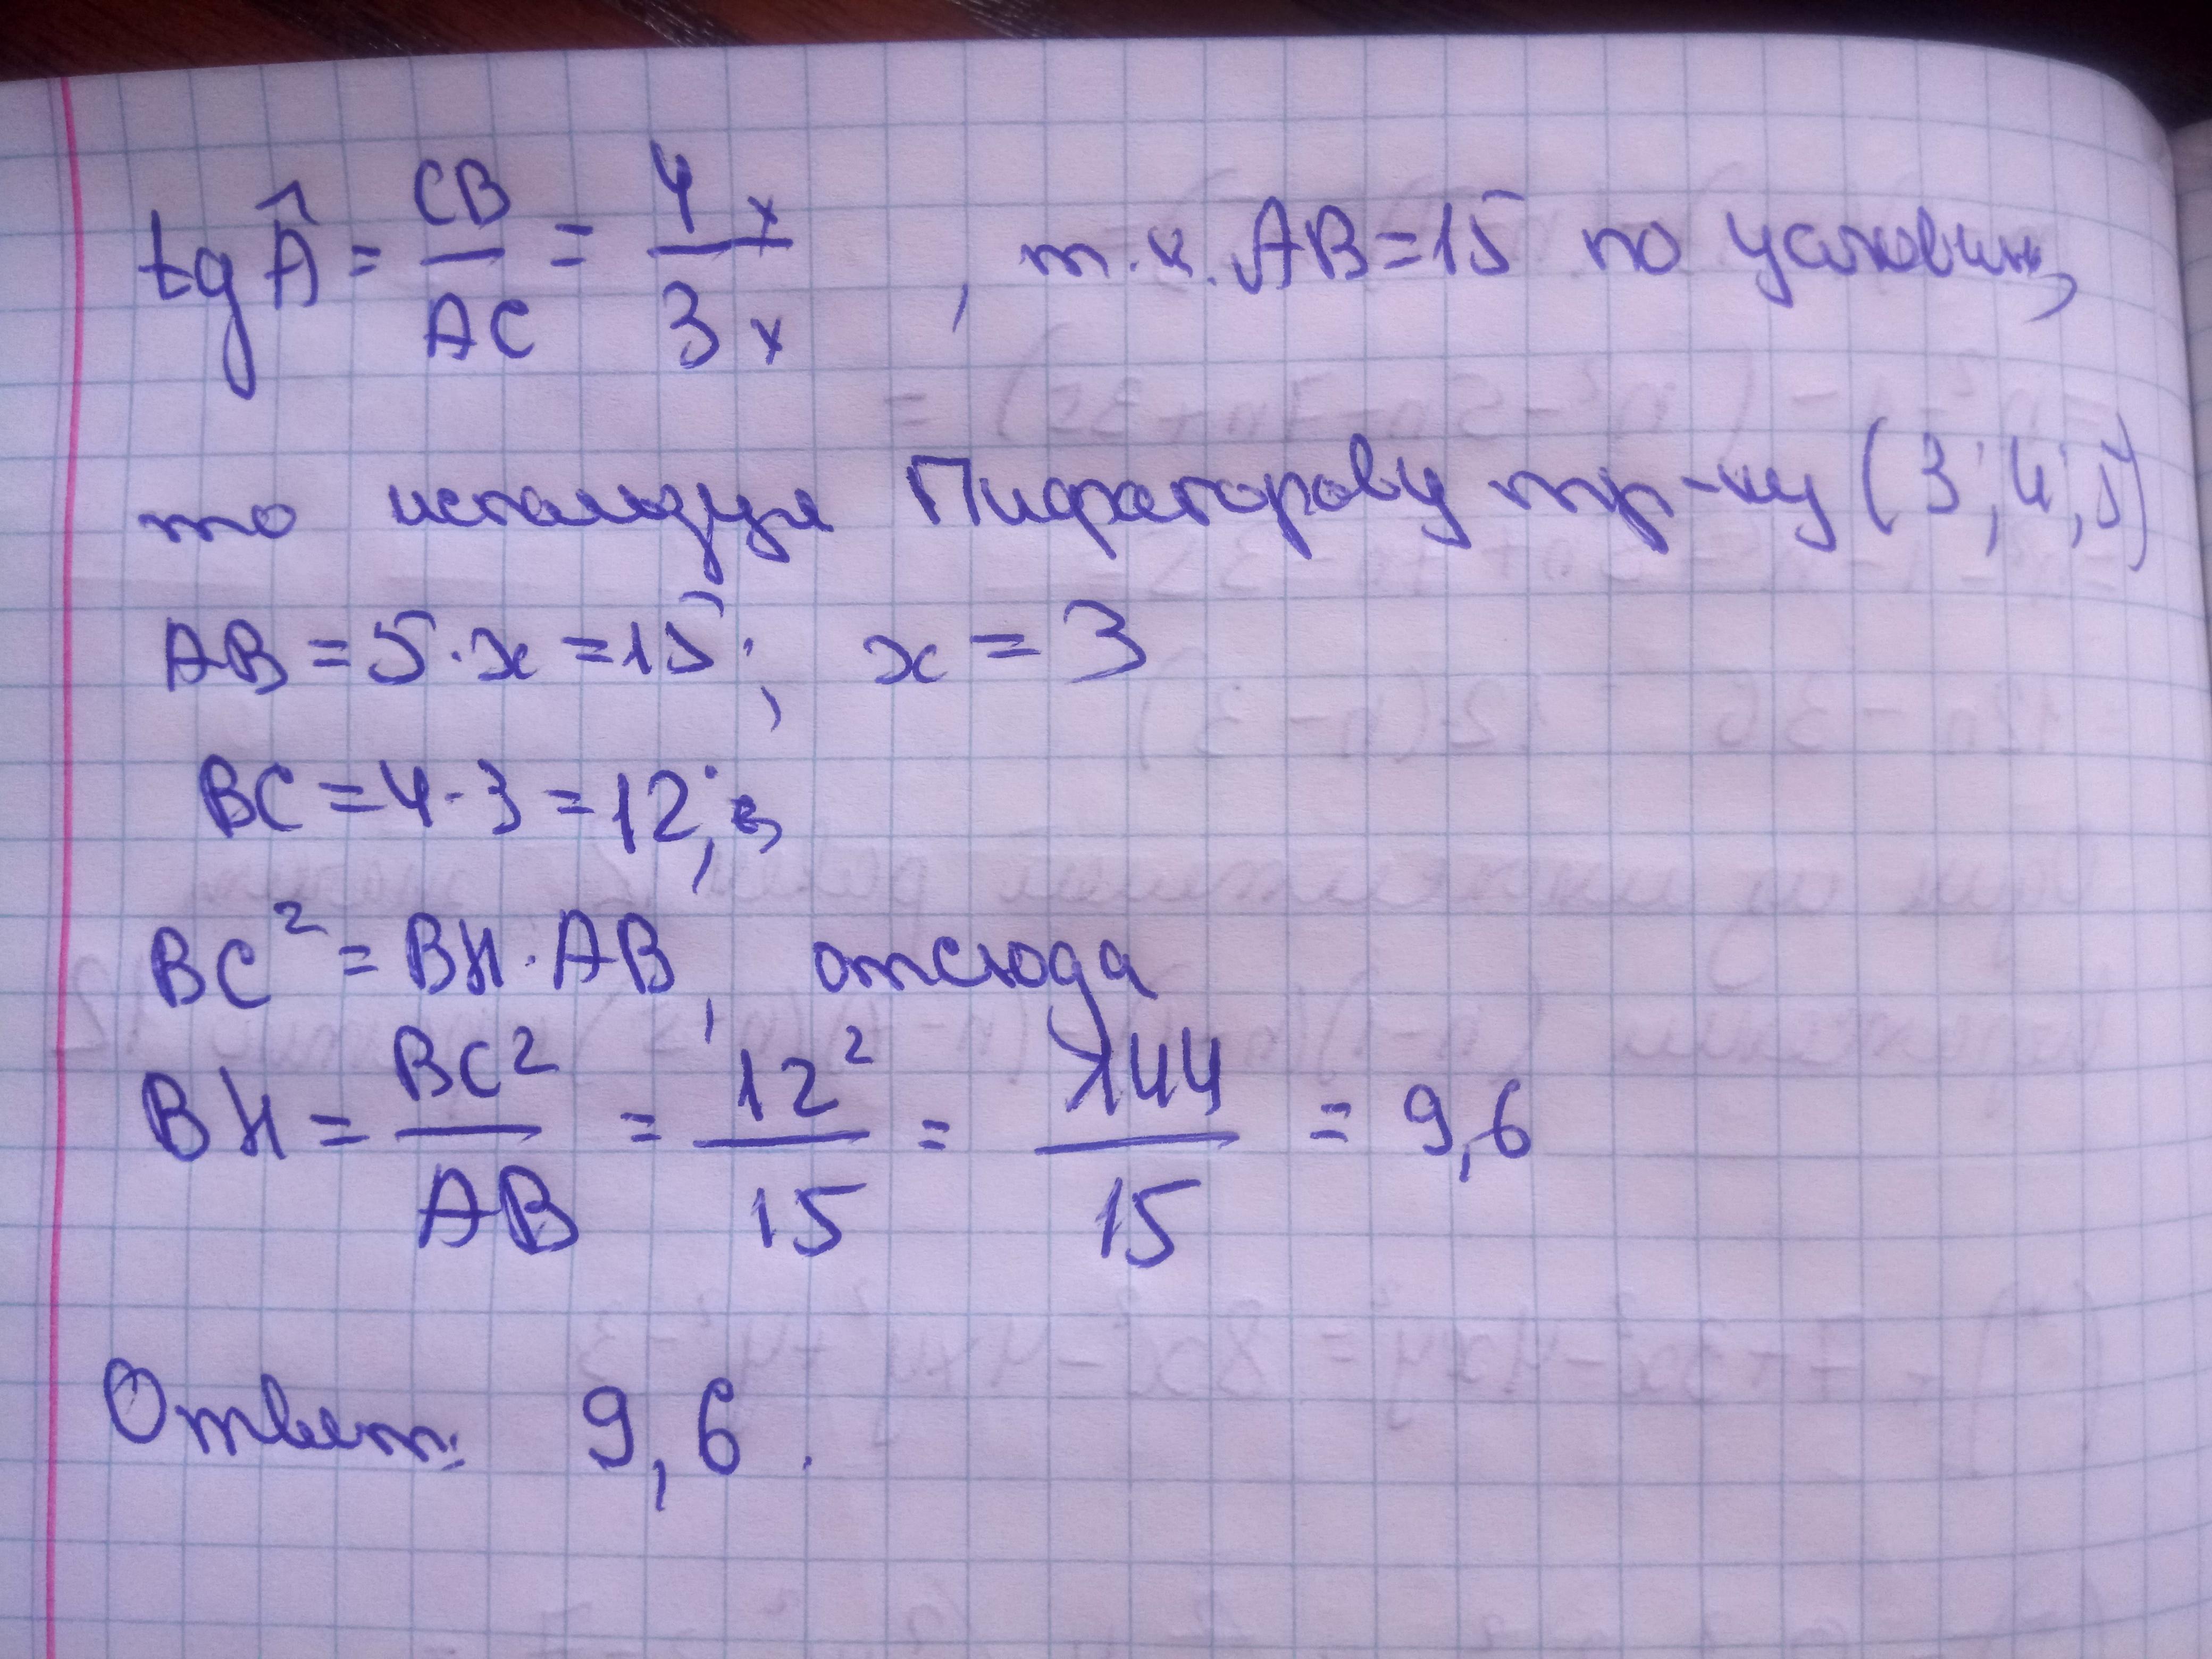 tg Â = CB/AC = 4x/3x, т.к. AB=15 по условию,
то используя Пифагорову тр-ку (3;4;5)
AB = 5·x = 15; x = 3
BC = 4·3 = 12;
BC² = BH·AB, отсюда
BH = BC²/AB = 12²/15 = 144/15 = 9,6
Ответ: 9,6.